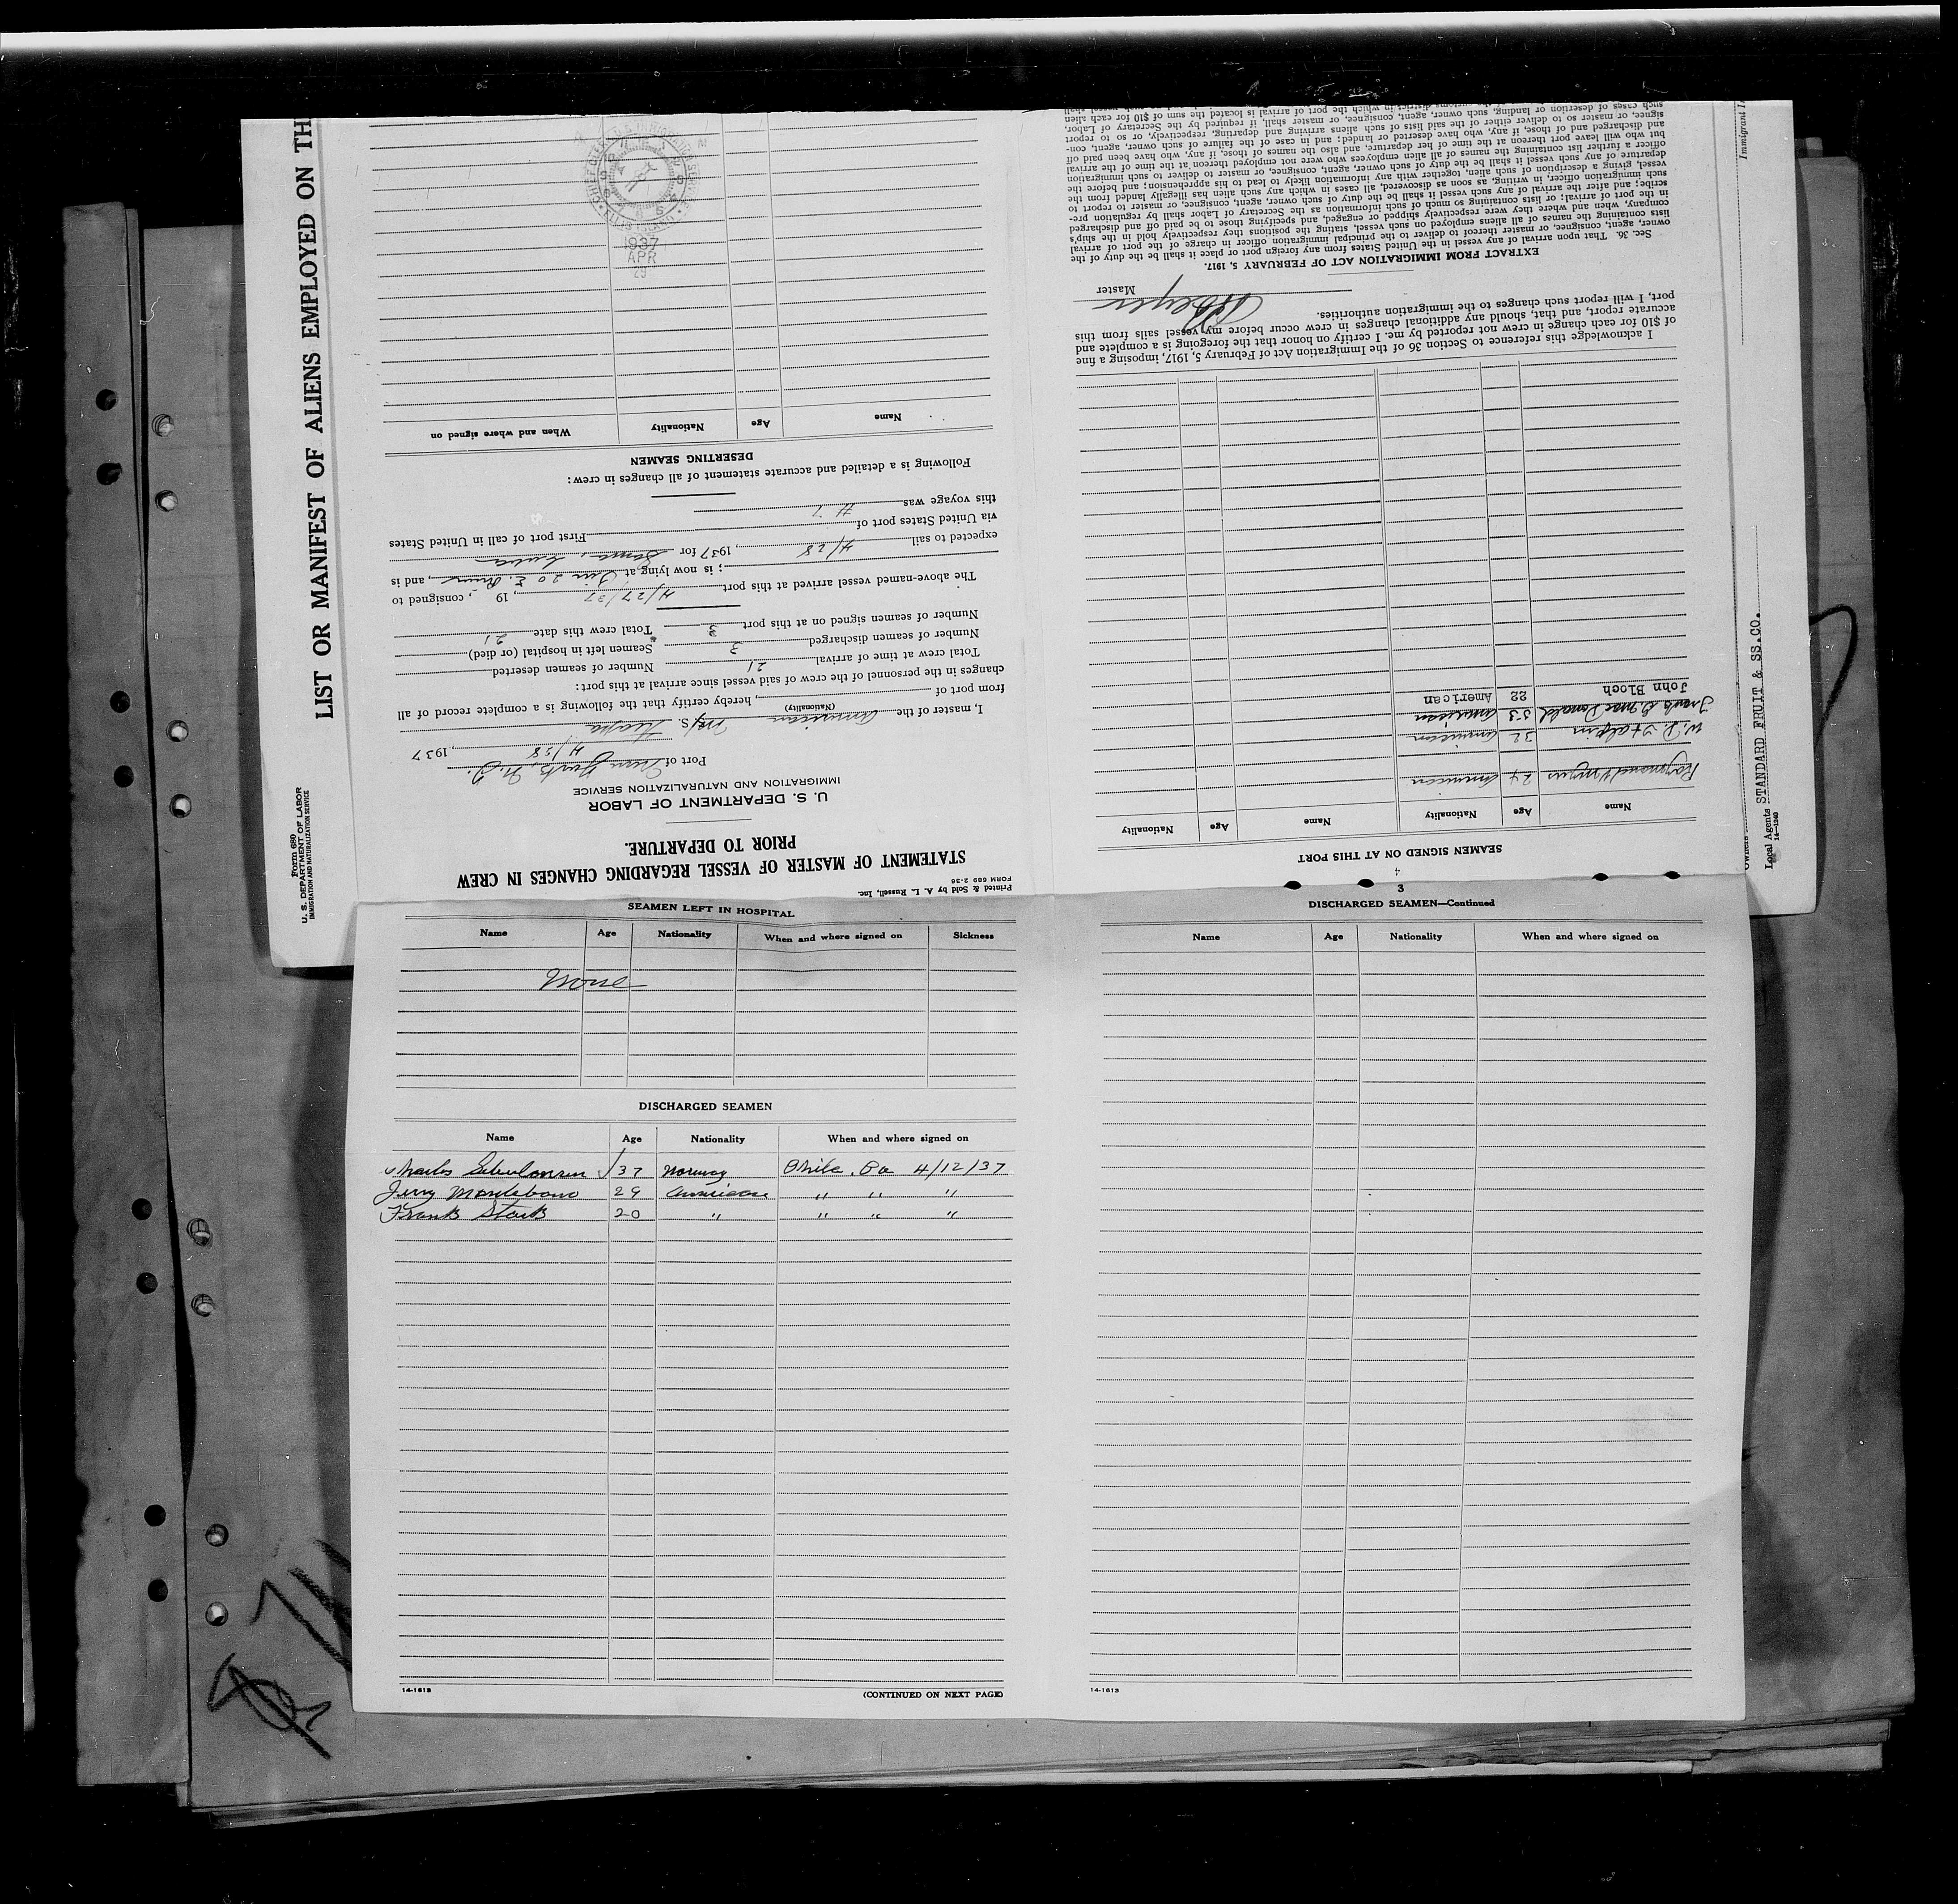 LIST OR MANIFEST OF ALIENS EMPLOYED ON TH
Form 680
U. S. DEPARTMENT OF LABOR
IMMIGRATION AND NATURALIZATION SERVICE
Printed & Sold by A. L. Russell, Inc.
FORM 689 2-36
STATEMENT OF MASTER OF VESSEL REGARDING CHANGES IN CREW
PRIOR TO DEPARTURE.
U. S. DEPARTMENT OF LABOR
IMMIGRATION AND NATURALIZATION SERVICE
Port of New York, N. Y.
4/28, 1937
I, master of the American M/S.
(Nationality)
from port of , hereby certify that the following is a complete record of all
changes in the personnel of the crew of said vessel since arrival at this port:
Total crew at time of arrival 21 Number of seamen deserted
Number of seamen discharged 3 Seamen left in hospital (or died)
Number of seamen signed on at this port 3 Total crew this date 21
The above-named vessel arrived at this port 4/27/37, 19 , consigned to
; is now lying at Pier 20 E. River, and is
expected to sail 4/28, 1937 for , Cuba
via United States port of First port of call in United States
this voyage was
Following is a detailed and accurate statement of all changes in crew:
DESERTING SEAMEN
Name Age Nationality When and where signed on
1937
APR
29
SEAMEN LEFT IN HOSPITAL
Name Age Nationality When and where signed on Sickness
None
DISCHARGED SEAMEN
Name Age Nationality When and where signed on
Charles 37 Norway Phila. Pa 4/12/37
Jerry 29 American " " "
Frank Stark 20 " " " "
14-1613
(CONTINUED ON NEXT PAGE)
3
DISCHARGED SEAMEN—Continued
Name Age Nationality When and where signed on
14-1613
4
SEAMEN SIGNED ON AT THIS PORT
Name Age Nationality Name Age Nationality
Raymond Myers 24 American
W. D. Halpin 32 American
Frank G. Mac Donald 53 American
John Bloch 22 American
I acknowledge this reference to Section 36 of the Immigration Act of February 5, 1917, imposing a fine
of $10 for each change in crew not reported by me. I certify on honor that the foregoing is a complete and
accurate report, and that, should any additional changes in crew occur before my vessel sails from this
port, I will report such changes to the immigration authorities.
Master
EXTRACT FROM IMMIGRATION ACT OF FEBRUARY 5, 1917.
Sec. 36. That upon arrival of any vessel in the United States from any foreign port or place it shall be the duty of the
owner, agent, consignee, or master thereof to deliver to the principal immigration officer in charge of the port of arrival
lists containing the names of all aliens employed on such vessel, stating the positions they respectively hold in the ship's
company, when and where they were respectively shipped or engaged, and specifying those to be paid off and discharged
in the port of arrival; or lists containing so much of such information as the Secretary of Labor shall by regulation pre-
scribe; and after the arrival of any such vessel it shall be the duty of such owner, agent, consignee, or master to report to
such immigration officer, in writing, as soon as discovered, all cases in which any such alien has illegally landed from the
vessel, giving a description of such alien, together with any information likely to lead to his apprehension; and before the
departure of any such vessel it shall be the duty of such owner, agent, consignee, or master to deliver to such immigration
officer a further list containing the names of all alien employees who were not employed thereon at the time of the arrival
but who will leave port thereon at the time of her departure, and also the names of those, if any, who have been paid off
and discharged and of those, if any, who have deserted or landed; and in case of the failure of such owner, agent, con-
signee, or master so to deliver either of the said lists of such aliens arriving and departing, respectively, or so to report
such cases of desertion or landing, such owner, agent, consignee, or master shall, if required by the Secretary of Labor,
customs district in which the port of arrival is located the sum of $10 for each alien
Local Agents STANDARD FRUIT & SS.CO.
14-1240